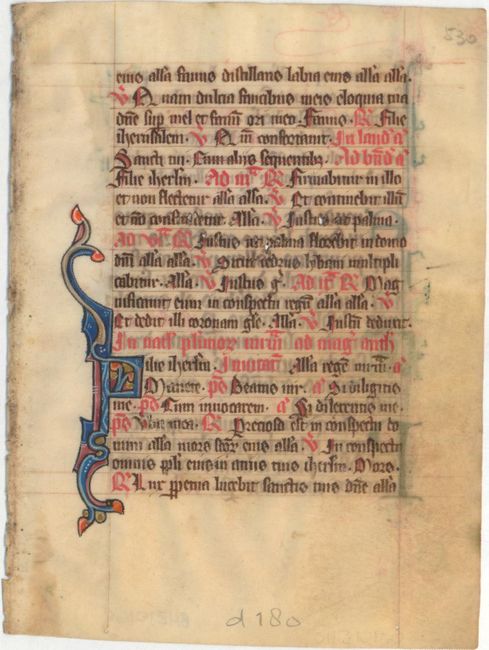 530
eius alla fauus distillans labia eius alla alla.
V Quam dulcia faucibus meis eloquia tua
dne sup mel et ori meo. Fauus. R Filie
iherusalem. V Qm confortauit. In laud a
Sancti tui. Cum alijs sequentib. Ad a
Filie iherlm. Ad R Firmabitur in illo
et non flectetur alla alla. V Et continebit illum
et non confundetur. Alla. V Iustus ut palma.
Ad R Iustus ut palma florebit in domo
dni alla alla. V Sicut cedrus lybani multipli
cabitur. Alla. V Iustus g. Ad R Mag
nificauit eum in conspectu regum alla alla. V
Et dedit illi coronam gle. Alla. V Iustum deduxit.
In nat plurior mrm ad
Filie iherlm. Inuitat. Alla regem mrm. a
Manete. ps Beatus uir. a Si diligitis
me. ps Cum inuocarem. a Si diligeritis me
ps R Preciosa est in conspectu do
mini alla mors scor eius alla. V In conspectu
omnis ppli eius in atriis tuis iherlm. Mors.
R Lux ppetua lucebit sanctis tuis dne alla
d 180